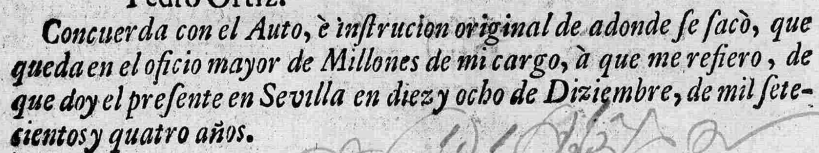 Pedro Ortiz.
Concuerda con el Auto, è inſtrucion original de adonde ſe ſacò, que
queda en el oficio mayor de Millones de mi cargo, à que me refiero, de
que doy el preſente en Sevilla en diez y ocho de Diziembre, de mil ſete-
cientos y quatro años.